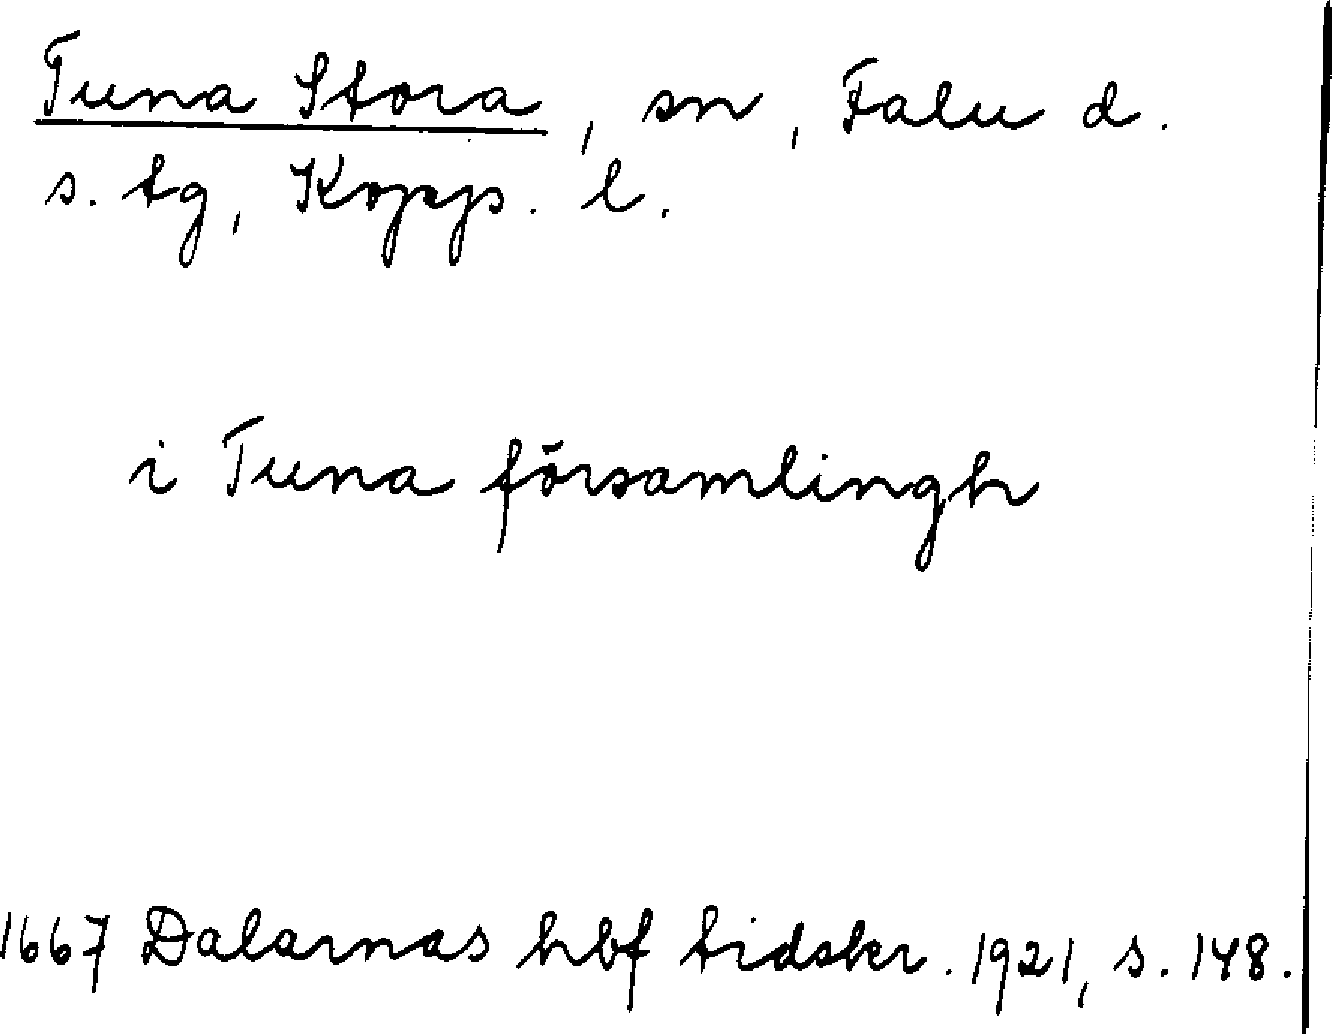 Tuna Stora, sn, Falu d.
s. tg, Kopp. l.
i Tuna församlingh
1667 Dalarnas hbf tidskr. 1921, s. 148.